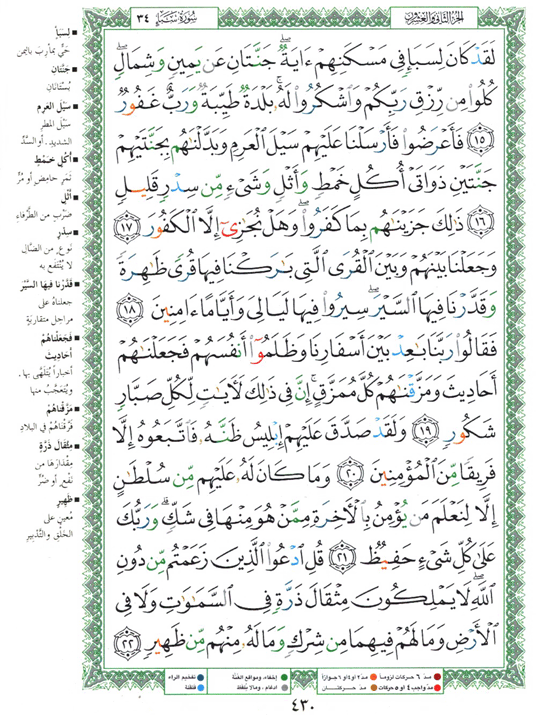 الجزء الثاني والعشرون
سورة سبأ ٣٤
لَقَدْ كَانَ لِسَبَإٍ فِي مَسْكَنِهِمْ ءَايَةٌ ۖ جَنَّتَانِ عَن يَمِينٍ وَشِمَالٍ ۖ
كُلُوا۟ مِن رِّزْقِ رَبِّكُمْ وَٱشْكُرُوا۟ لَهُۥ ۚ بَلْدَةٌ طَيِّبَةٌ وَرَبٌّ غَفُورٌ
١٥ فَأَعْرَضُوا۟ فَأَرْسَلْنَا عَلَيْهِمْ سَيْلَ ٱلْعَرِمِ وَبَدَّلْنَٰهُم بِجَنَّتَيْهِمْ
جَنَّتَيْنِ ذَوَاتَىْ أُكُلٍ خَمْطٍ وَأَثْلٍ وَشَىْءٍ مِّن سِدْرٍ قَلِيلٍ
١٦ ذَٰلِكَ جَزَيْنَٰهُم بِمَا كَفَرُوا۟ ۖ وَهَلْ نُجَٰزِىٓ إِلَّا ٱلْكَفُورَ ١٧
وَجَعَلْنَا بَيْنَهُمْ وَبَيْنَ ٱلْقُرَى ٱلَّتِى بَٰرَكْنَا فِيهَا قُرًى ظَٰهِرَةً
وَقَدَّرْنَا فِيهَا ٱلسَّيْرَ ۖ سِيرُوا۟ فِيهَا لَيَالِىَ وَأَيَّامًا ءَامِنِينَ ١٨
فَقَالُوا۟ رَبَّنَا بَٰعِدْ بَيْنَ أَسْفَارِنَا وَظَلَمُوٓا۟ أَنفُسَهُمْ فَجَعَلْنَٰهُمْ
أَحَادِيثَ وَمَزَّقْنَٰهُمْ كُلَّ مُمَزَّقٍ ۚ إِنَّ فِى ذَٰلِكَ لَءَايَٰتٍ لِّكُلِّ صَبَّارٍ
شَكُورٍ ١٩ وَلَقَدْ صَدَّقَ عَلَيْهِمْ إِبْلِيسُ ظَنَّهُۥ فَٱتَّبَعُوهُ إِلَّا
فَرِيقًا مِّنَ ٱلْمُؤْمِنِينَ ٢٠ وَمَا كَانَ لَهُۥ عَلَيْهِم مِّن سُلْطَٰنٍ
إِلَّا لِنَعْلَمَ مَن يُؤْمِنُ بِٱلْءَاخِرَةِ مِمَّنْ هُوَ مِنْهَا فِى شَكٍّ ۗ وَرَبُّكَ
عَلَىٰ كُلِّ شَىْءٍ حَفِيظٌ ٢١ قُلِ ٱدْعُوا۟ ٱلَّذِينَ زَعَمْتُم مِّن دُونِ
ٱللَّهِ ۖ لَا يَمْلِكُونَ مِثْقَالَ ذَرَّةٍ فِى ٱلسَّمَٰوَٰتِ وَلَا فِى
ٱلْأَرْضِ وَمَا لَهُمْ فِيهِمَا مِن شِرْكٍ وَمَا لَهُۥ مِنْهُم مِّن ظَهِيرٍ ٢٢
لسبأ
حيّ بمأرب باليمن
جنتان
بستانان
سيل العرم
سيل المطر
الشديد، أو السدّ
أكل خمط
ثمر حامض أو مرّ
أثل
ضرب من الطرفاء
سدر
نوع من الضال
لا ينتفع به
قدرنا فيها السير
جعلناه على
مراحل متقاربة
فجعلناهم
أحاديث
أخباراً يتلهى بها،
ويتعجب منها
مزقناهم
فرقناهم في البلاد
مثقال ذرة
مقدارها من
نفع أو ضرّ
ظهير
معين على
الخلق والتدبير
مدّ ٦ حركات لزوماً مدّ ٢ أو ٤ أو ٦ جوازاً
مدّ واجب ٤ أو ٥ حركات مدّ حركتان
إخفاء، ومواقع الغنّة
إدغام، وما لا يلفظ
تفخيم الراء
قلقلة
٤٣٠